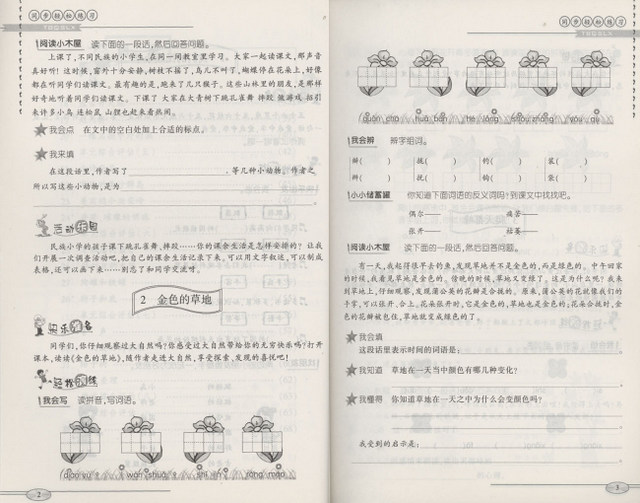 同步轻松练习
TBQSLX
阅读小木屋 读下面的一段话,然后回答问题。
上课了,不同民族的小学生,在同一间教室里学习。大家一起读课文,那声音
真好听!这时候,窗外十分安静,树枝不摇了,鸟儿不叫了,蝴蝶停在花朵上,好像
都在听同学们读课文。最有趣的是,跑来了几只猴子。这些山林里的朋友,是那样
好奇地听着同学们读课文。下课了 大家在大青树下跳孔雀舞 摔跤 做游戏 招引
来许多小鸟 连松鼠 山狸也赶来看热闹。
我会点 在文中的空白处加上合适的标点。
我来填
在这段话里,作者写了 、等几种小动物。作者之
所以写这些小动物,是为 。
活动
民族小学的孩子课下跳孔雀舞、摔跤……你的课余生活是怎样安排的?让我
们开展一次调查活动吧,把自己的课余生活记录下来,可以用文字叙述,可以制成
表格,还可以画下来……别忘了和同学交流呀。
2 金色的草地
同学们,你仔细观察过大自然吗?你感受过大自然带给你的无穷快乐吗?打开
课本,读读《金色的草地》,随作者走进大自然,享受探索、发现的喜悦吧!
我会写 读拼音,写词语。
2
同步轻松练习
TBQSLX
我会辨 辨字组词。
辫( ) 挑( ) 钓( ) 装( )
辨( ) 钩( )
小小储蓄罐 你知道下面词语的反义词吗?到课文中找找吧。
偶尔—— 痛苦——
张开—— 枯萎——
阅读小木屋 读下面的一段话,然后回答问题。
有一天,我起得很早去钓鱼,发现草地并不是金色的,而是绿色的。中午回家
的时候,我看见草地是金色的。傍晚的时候,草地又变绿了。这是为什么呢?我来
到草地上,仔细观察,发现蒲公英的花瓣是合拢的。原来,蒲公英的花就像我们的
手掌,可以张开、合上。花朵张开时,它是金色的,草地也是金色的;花朵合拢时,金
色的花瓣被包住,草地就变成绿色的了。
我会填
这段话里表示时间的词语是:
我知道 草地在一天当中颜色有哪几种变化?
我懂得 你知道草地在一天之中为什么会变颜色吗?
我受到的启示是:
3